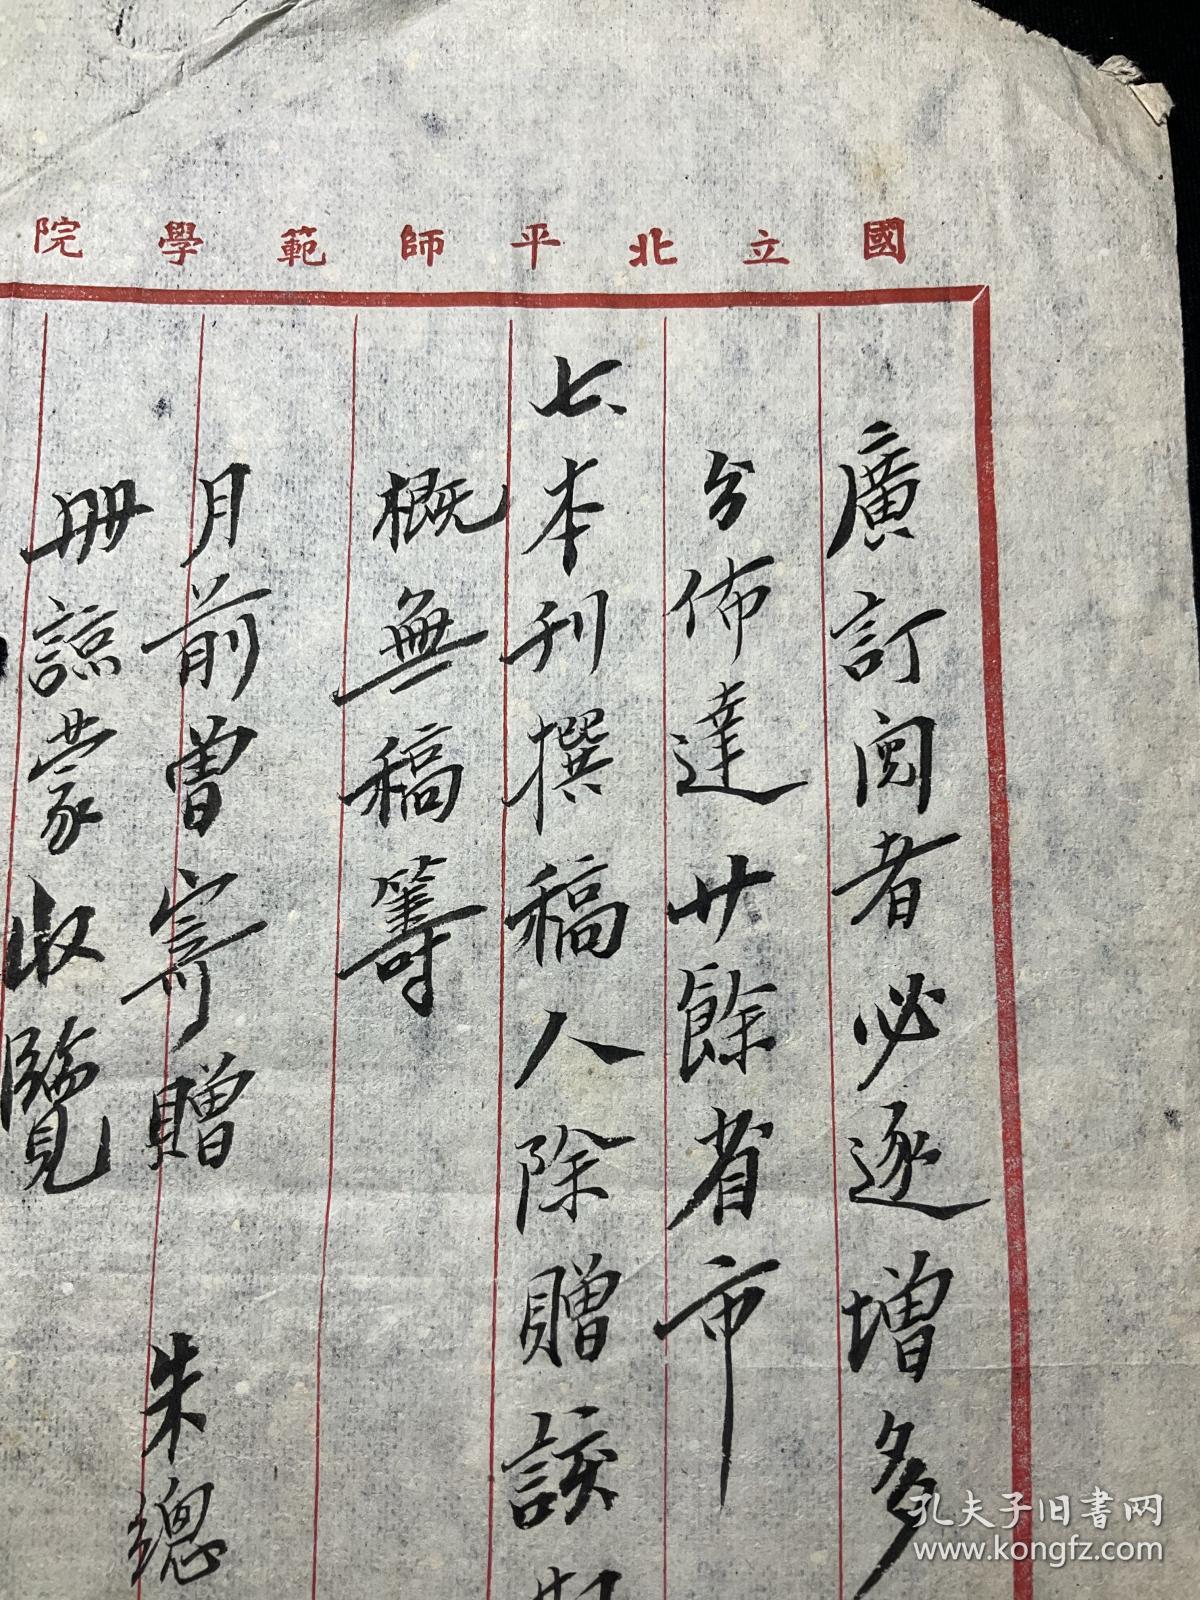 國立北平師範學院
廣訂閱者必逐增多
分佈達廿餘省市
七本刊撰稿人除贈該
概無稿籌
月前曾寄贈 朱總
冊諒蒙收覽
孔夫子旧书网
www.kongfz.com